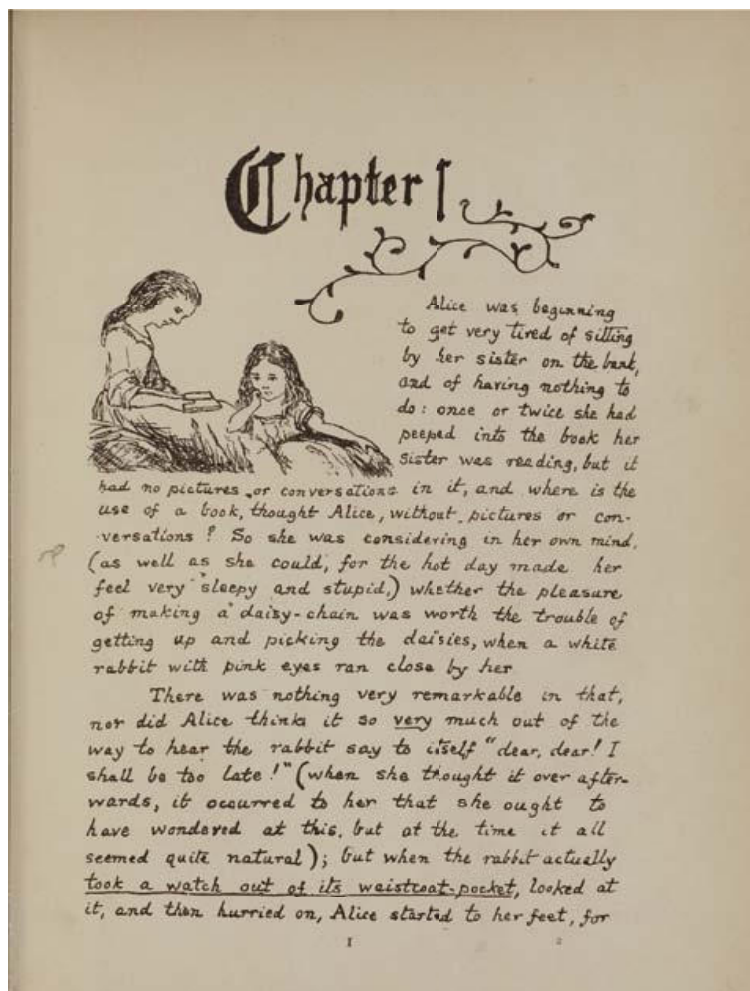 Chapter I
Alice was beginning
to get very tired of sitting
by her sister on the bank,
and of having nothing to
do: once or twice she had
peeped into the book her
sister was reading, but it
had no pictures or conversations in it, and where is the
use of a book, thought Alice, without pictures or con-
-versations? So she was considering in her own mind,
(as well as she could, for the hot day made her
feel very sleepy and stupid,) whether the pleasure
of making a daisy-chain was worth the trouble of
getting up and picking the daisies, when a white
rabbit with pink eyes ran close by her
There was nothing very remarkable in that,
nor did Alice think it so very much out of the
way to hear the rabbit say to itself "dear, dear! I
shall be too late!" (when she thought it over after-
wards, it occurred to her that she ought to
have wondered at this, but at the time it all
seemed quite natural); but when the rabbit actually
took a watch out of its waistcoat-pocket, looked at
it, and then hurried on, Alice started to her feet, for
1 2